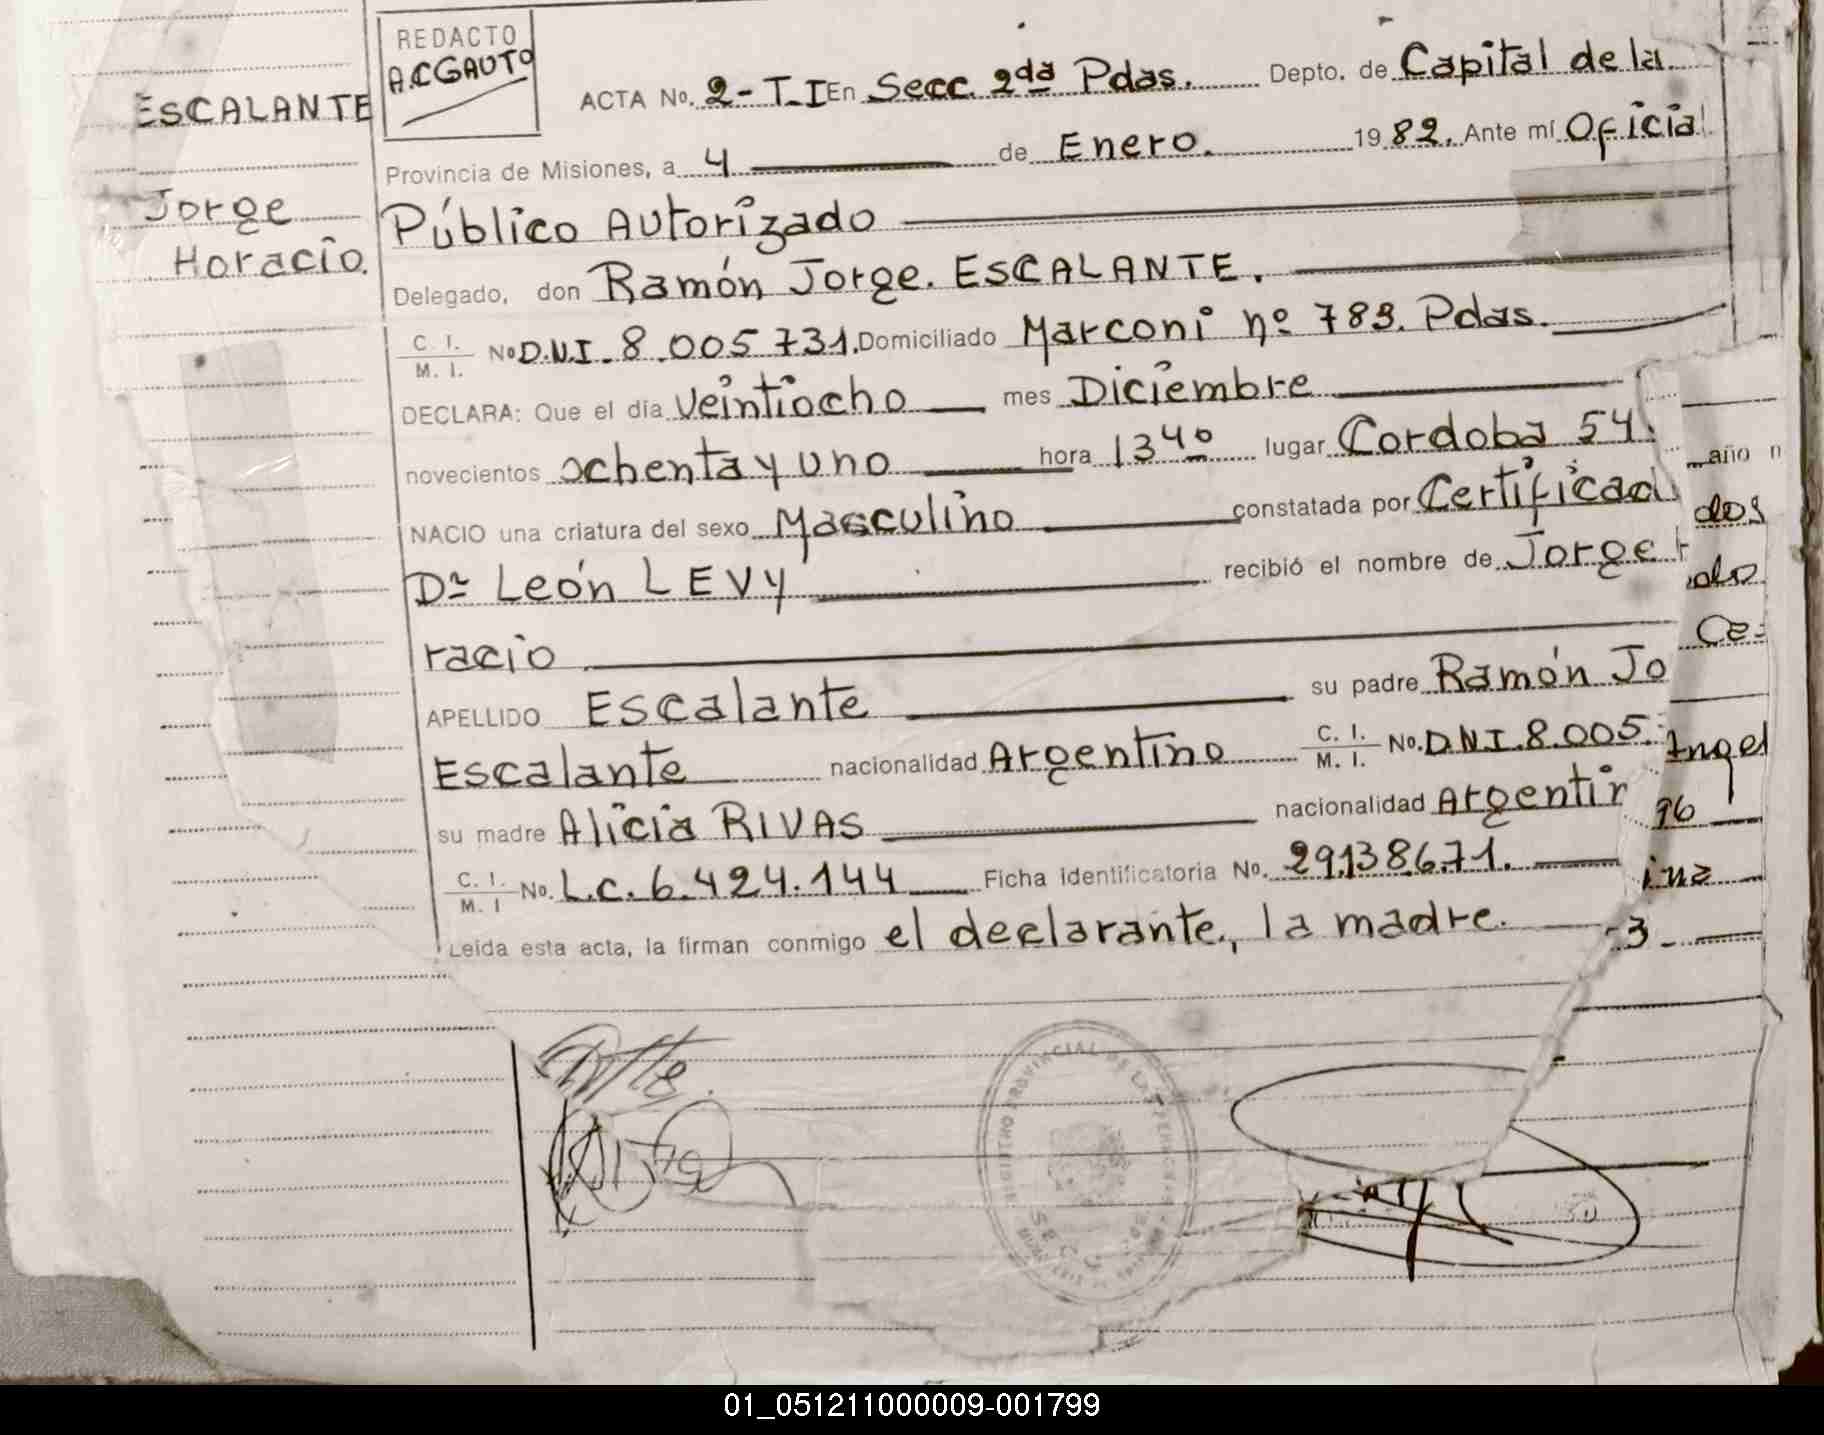 ESCALANTE
Jorge
Horacio.
REDACTO
A.C GAUTO
ACTA No. 2-T-I En Secc. 2da Pdas. Depto. de Capital de la
Provincia de Misiones, a 4 de Enero. 1982. Ante mí Oficial
Público Autorizado
Delegado, don Ramón Jorge. ESCALANTE.
C. I.
M. I. No D.N.I. 8.005731. Domiciliado Marconi nº 783. Pdas.
DECLARA: Que el día veintiocho mes Diciembre
novecientos ochenta y uno hora 13 40 lugar Cordoba 54 año n
NACIO una criatura del sexo Masculino constatada por Certificad dos
Dr León LEVY recibió el nombre de Jorge do
racio Ce
APELLIDO Escalante su padre Ramón Jo
Escalante nacionalidad Argentino C. I. M. I. No. D.N.I. 8.005. Angel
su madre Alicia RIVAS nacionalidad Argentin 96
C. I. M. I No. L.C. 6.424.144 Ficha identificatoria No. 29.138.671. ina
Leída esta acta, la firman conmigo el declarante, la madre. 3
REGISTRO PROVINCIAL DE LAS PERSONAS
SECC
01_051211000009-001799